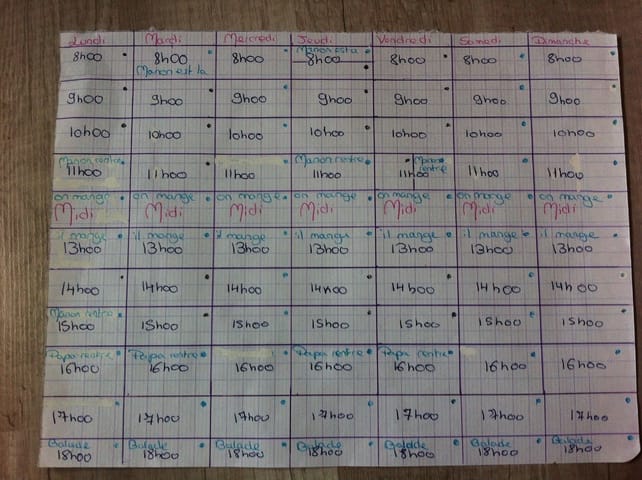 Lundi Mardi Mercredi Jeudi Vendredi Samedi Dimanche
Manon est la
8h00 8h00 8h00 8h00 8h00 8h00 8h00
Manon est la
9h00 9h00 9h00 9h00 9h00 9h00 9h00
10h00 10h00 10h00 10h00 10h00 10h00 10h00
Manon rentre Manon rentre Manon rentre
11h00 11h00 11h00 11h00 11h00 11h00 11h00
on mange on mange on mange on mange on mange on mange on mange
Midi Midi Midi Midi Midi Midi Midi
il mange il mange il mange il mange il mange il mange il mange
13h00 13h00 13h00 13h00 13h00 13h00 13h00
14h00 14h00 14h00 14h00 14h00 14h00 14h00
Manon rentre
15h00 15h00 15h00 15h00 15h00 15h00 15h00
Papa rentre Papa rentre Papa rentre Papa rentre
16h00 16h00 16h00 16h00 16h00 16h00 16h00
17h00 17h00 17h00 17h00 17h00 17h00 17h00
Balade Balade Balade Balade Balade Balade Balade
18h00 18h00 18h00 18h00 18h00 18h00 18h00